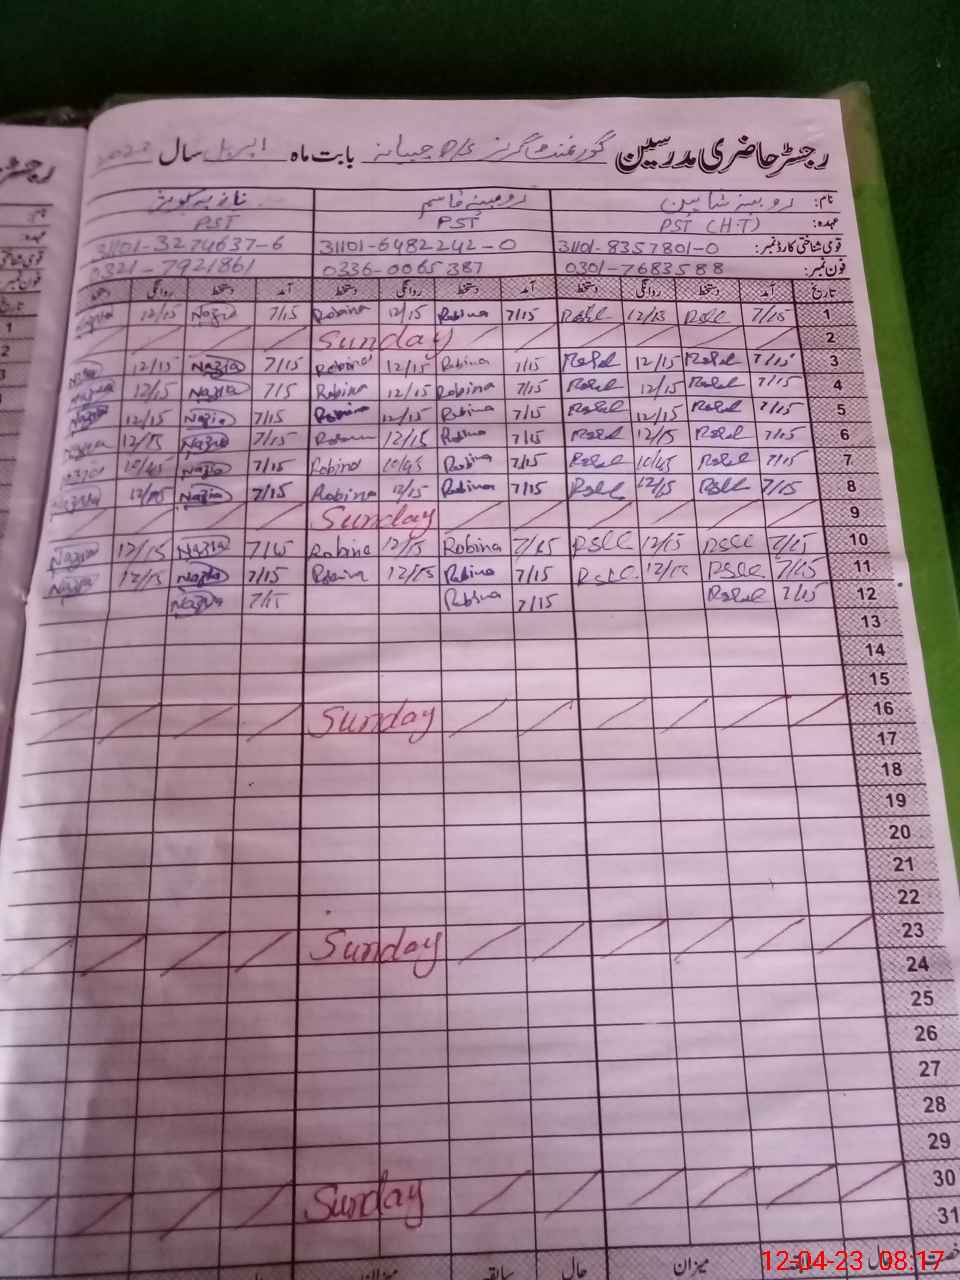 رجسٹر حاضری مدرسین گورنمنٹ گرلز P/S بابت ماہ اپریل سال 2023
نام: روبینہ شاہین روبینہ قاسم نازیہ کوثر
عہدہ: PST (H.T) PST PST
قومی شناختی کارڈ نمبر: 31101-8357801-0 31101-6482242-0 31101-3274637-6
فون نمبر: 0301-7683588 0336-0065387 0321-7921861
تاریخ آمد دستخط روانگی دستخط آمد دستخط روانگی دستخط آمد دستخط روانگی دستخط
1 7/15 12/15 7/15 Robina 12/15 Robina 7/15 Nazia 12/15
2 Sunday
3 7/15 12/15 7/15 Robina 12/15 Robina 7/15 Nazia 12/15
4 7/15 12/15 7/15 Robina 12/15 Robina 7/15 Nazia 12/15
5 7/15 12/15 7/15 Robina 12/15 Robina 7/15 Nazia 12/15
6 7/15 12/15 7/15 Robina 12/15 7/15 Nazia 12/15
7 7/15 10/45 7/15 Robina 10/45 Robina 7/15 Nazia 10/45
8 7/15 12/15 7/15 Robina 12/15 Robina 7/15 Nazia 12/15
9 Sunday
10 7/15 12/15 7/15 Robina 12/15 Robina 7/15 Nazia 12/15 Nazia
11 7/15 12/15 7/15 Robina 12/15 Robina 7/15 Nazia 12/15 Nazia
12 7/15 7/15 Robina 7/15 Nazia
13
14
15
16 Sunday
17
18
19
20
21
22
23 Sunday
24
25
26
27
28
29
30 Sunday
31
حال میزان حال سابقہ میزان حال
12-04-23 08:17